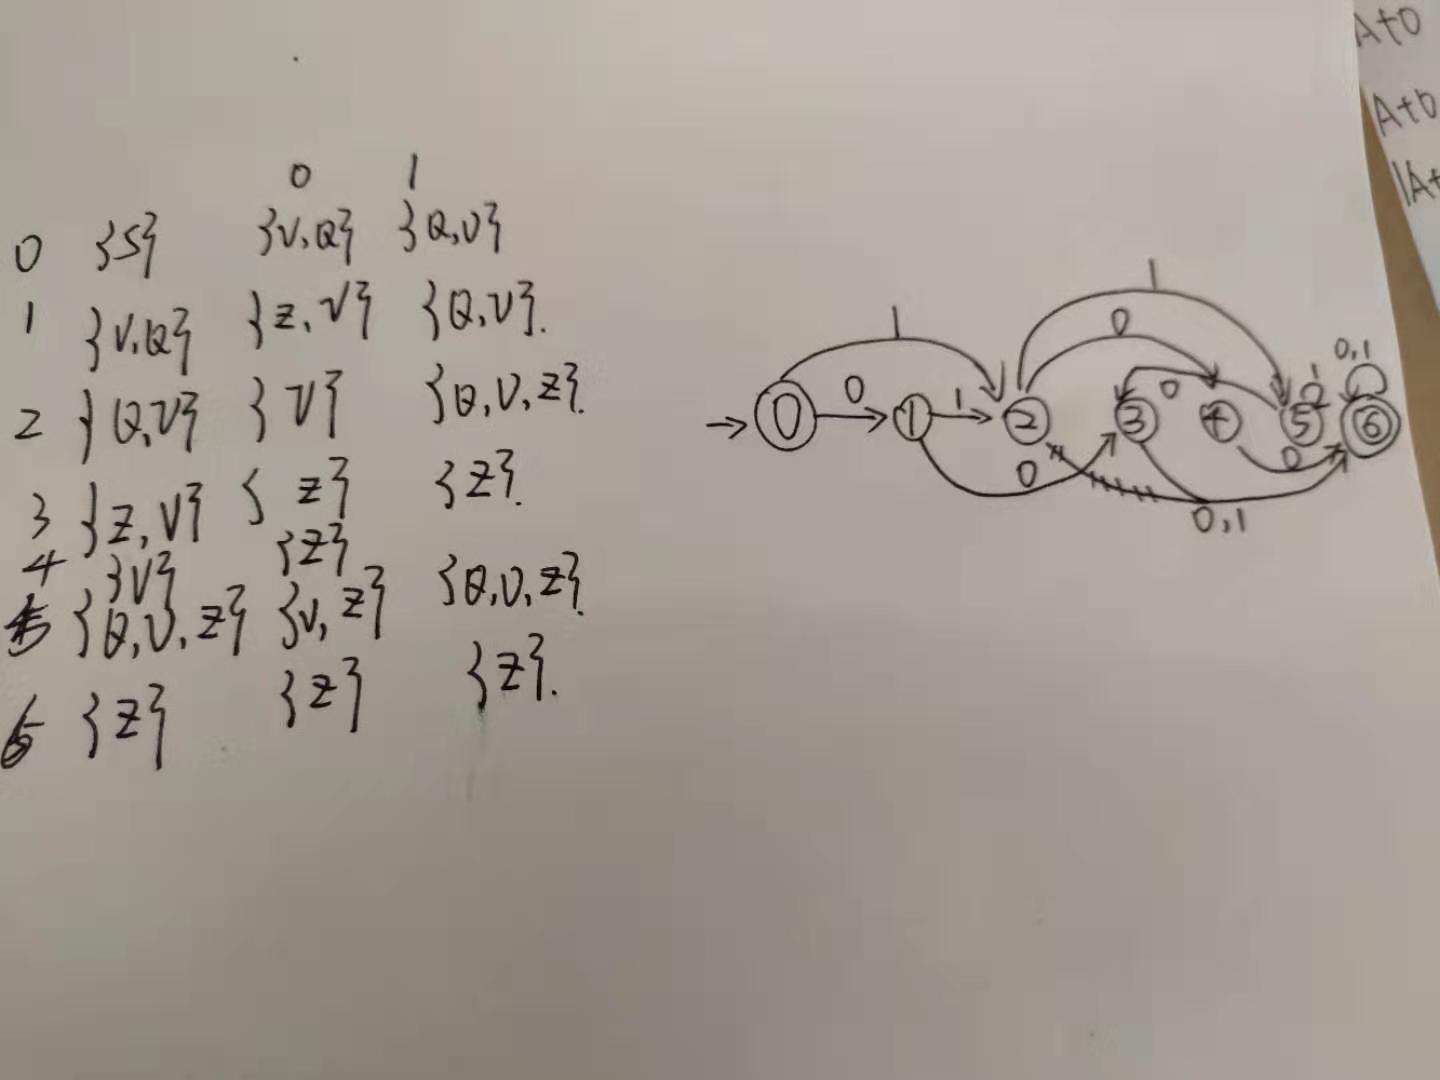 0 1
0 {S} {V,Q} {Q,U}
1 {V,Q} {Z,V} {Q,U}.
2 {Q,U} {V} {Q,U,Z}.
3 {Z,V} {Z} {Z}.
4 {V} {Z}
5 {Q,U,Z} {V,Z} {Q,U,Z}.
6 {Z} {Z} {Z}.
1
1 0 0,1
0 0 1
0 1 1 2 3 4 5 6
0 0
0,1
A+0
A+b
1A+